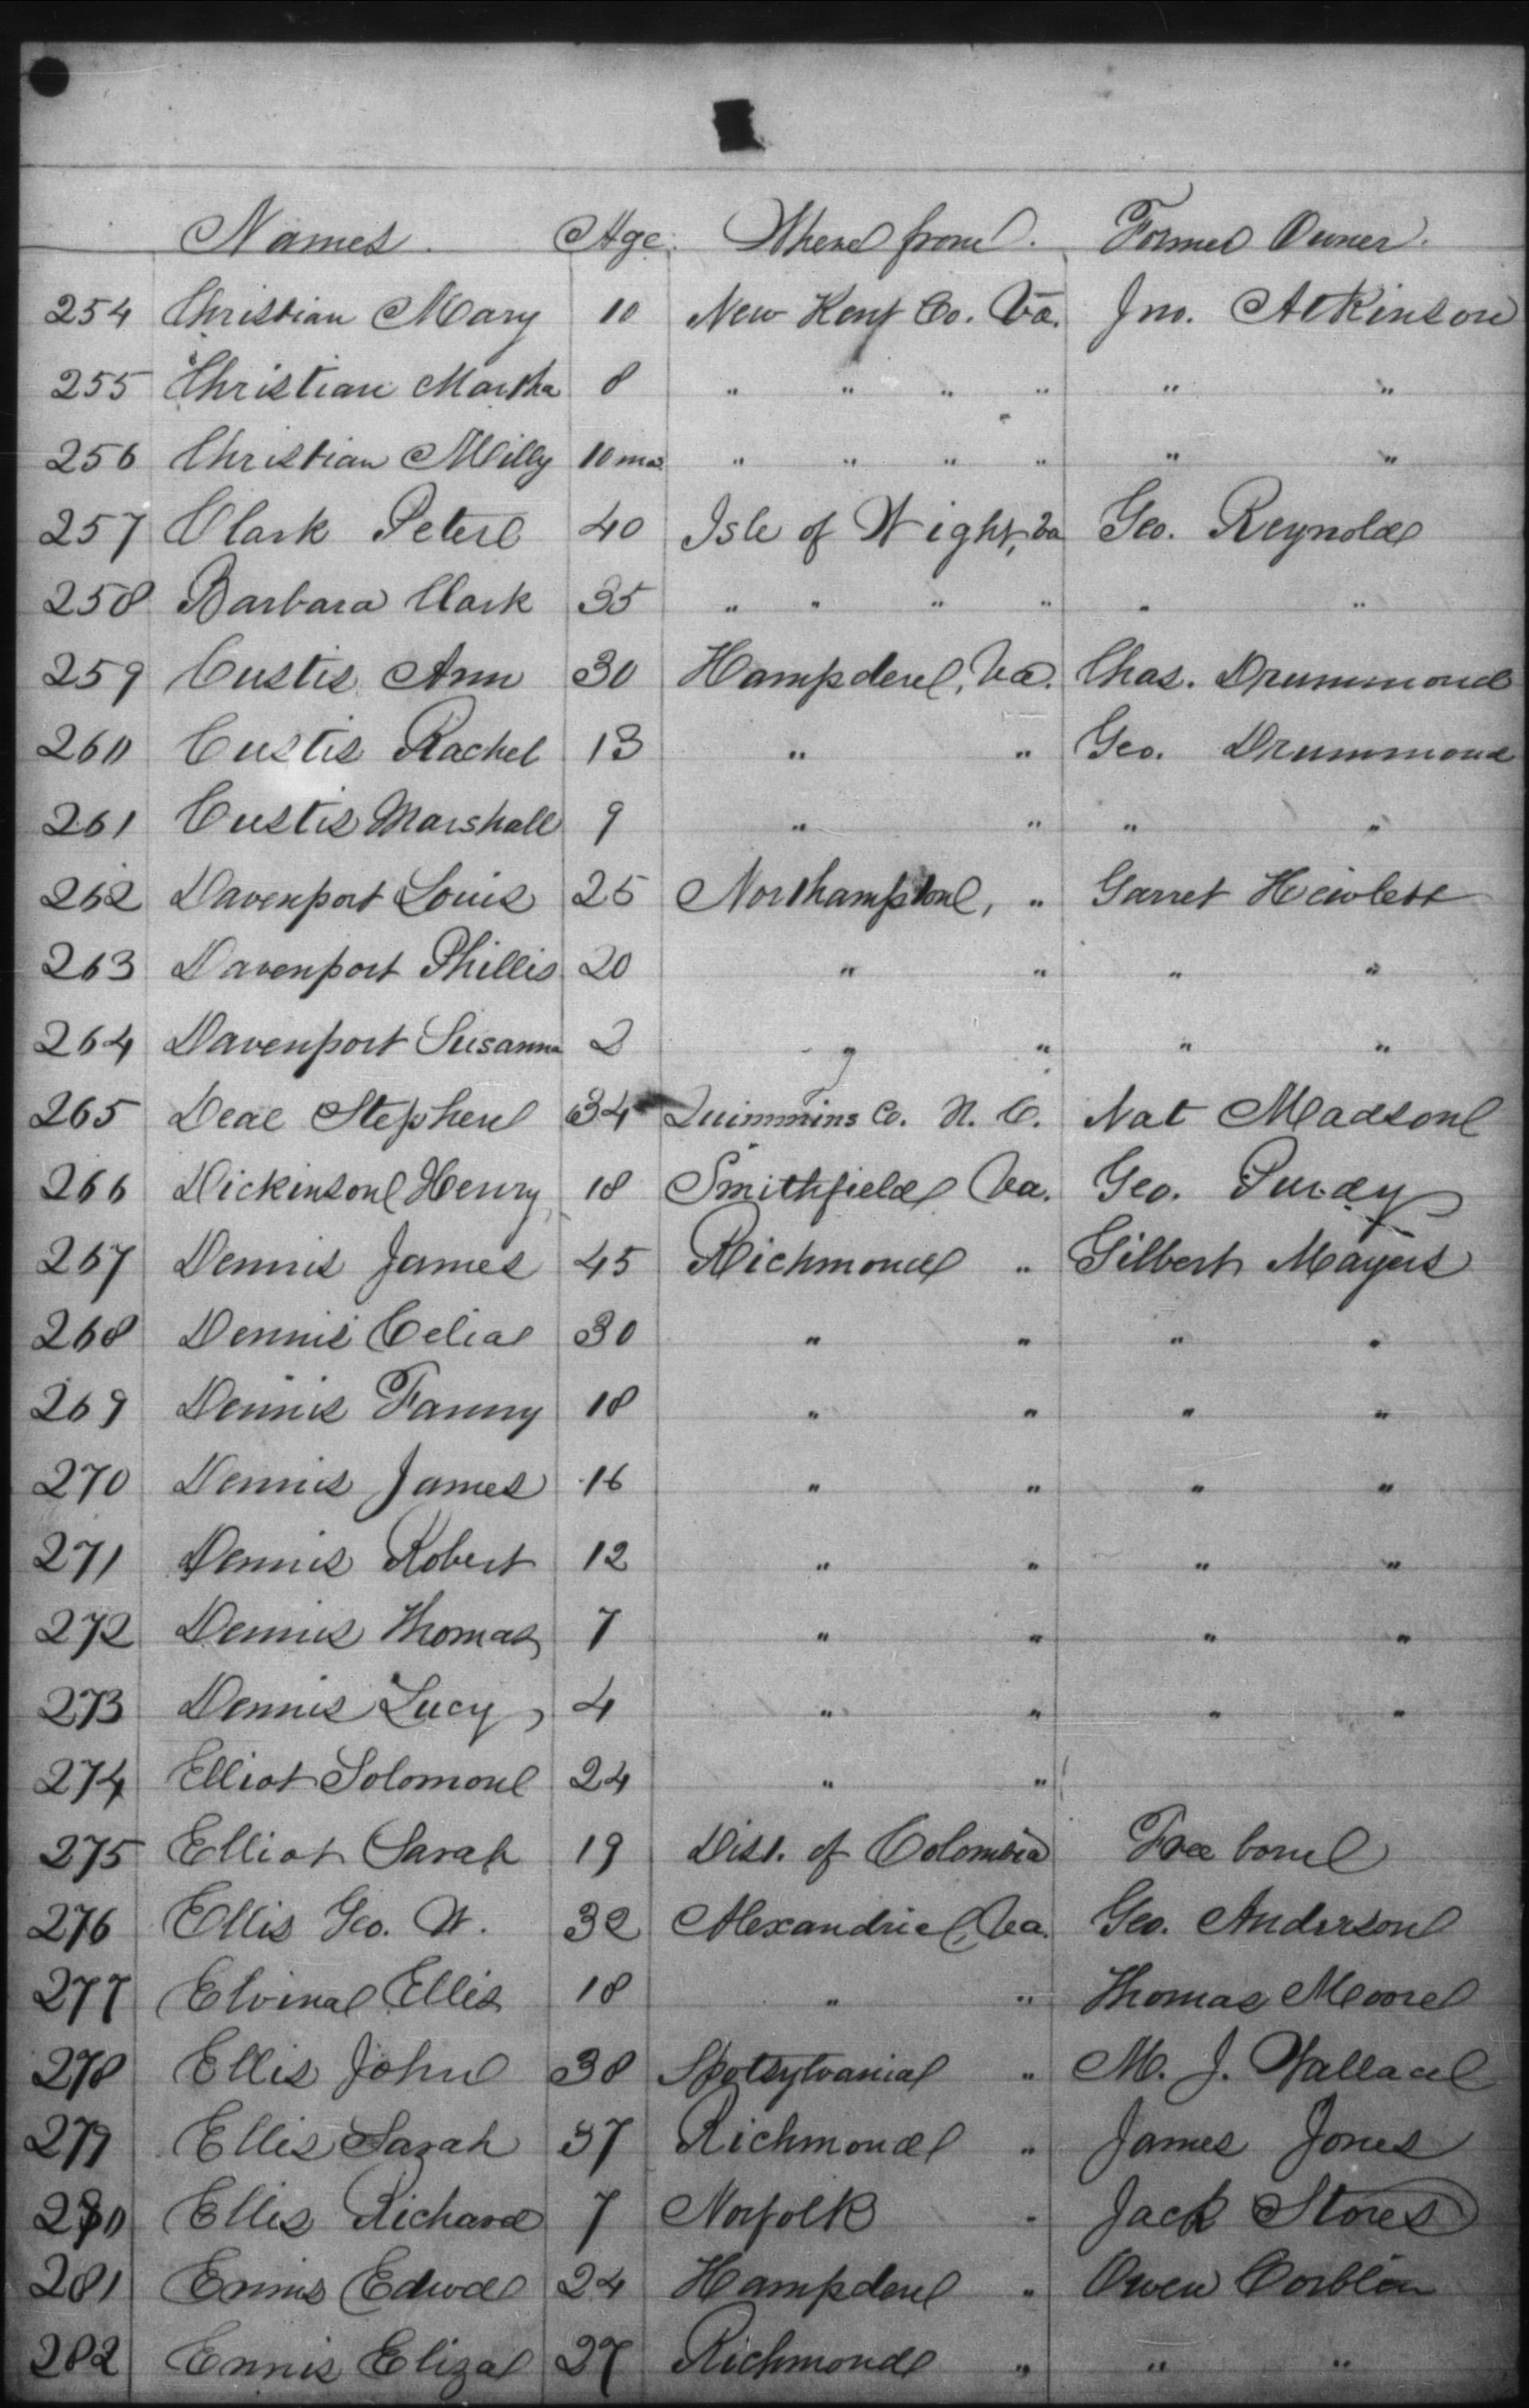 Names. Age. Where from. Former Owner.
254 Christian Mary 10 New Kent Co. Va. Jno. Atkinson
255 Christian Martha 8 " " " " " "
256 Christian Milly 10 mo. " " " " " "
257 Clark Peter 40 Isle of Wight, Va Geo. Reynold
258 Barbara Clark 35 " " " " " "
259 Custis Ann 30 Hampden, Va. Chas. Drummond
260 Custis Rachel 13 " " Geo. Drummond
261 Custis Marshall 9 " " " "
262 Davenport Louis 25 Northampton, " Garret Hewlett
263 Davenport Phillis 20 " " " "
264 Davenport Susanna 2 " " " "
265 Deal Stephen 34 Co. N. C. Nat Madson
266 Dickinson Henry 18 Smithfield Va. Geo. Purdy
267 Dennis James 45 Richmond " Gilbert Mayers
268 Dennis Celia 30 " " " "
269 Dennis Fanny 18 " " " "
270 Dennis James 16 " " " "
271 Dennis Robert 12 " " " "
272 Dennis Thomas 7 " " " "
273 Dennis Lucy 4 " " " "
274 Elliot Solomon 24 " "
275 Elliot Sarah 19 Dist. of Colombia Free born
276 Ellis Geo. W. 32 Alexandria, Va. Geo. Anderson
277 Elvina Ellis 18 " " Thomas Moore
278 Ellis John 38 Spotsylvania " M. J. Wallace
279 Ellis Sarah 37 Richmond " James Jones
280 Ellis Richard 7 Norfolk " Jack Stores
281 Ennis Edwd 24 Hampden " Owen
282 Ennis Eliza 27 Richmond " " "